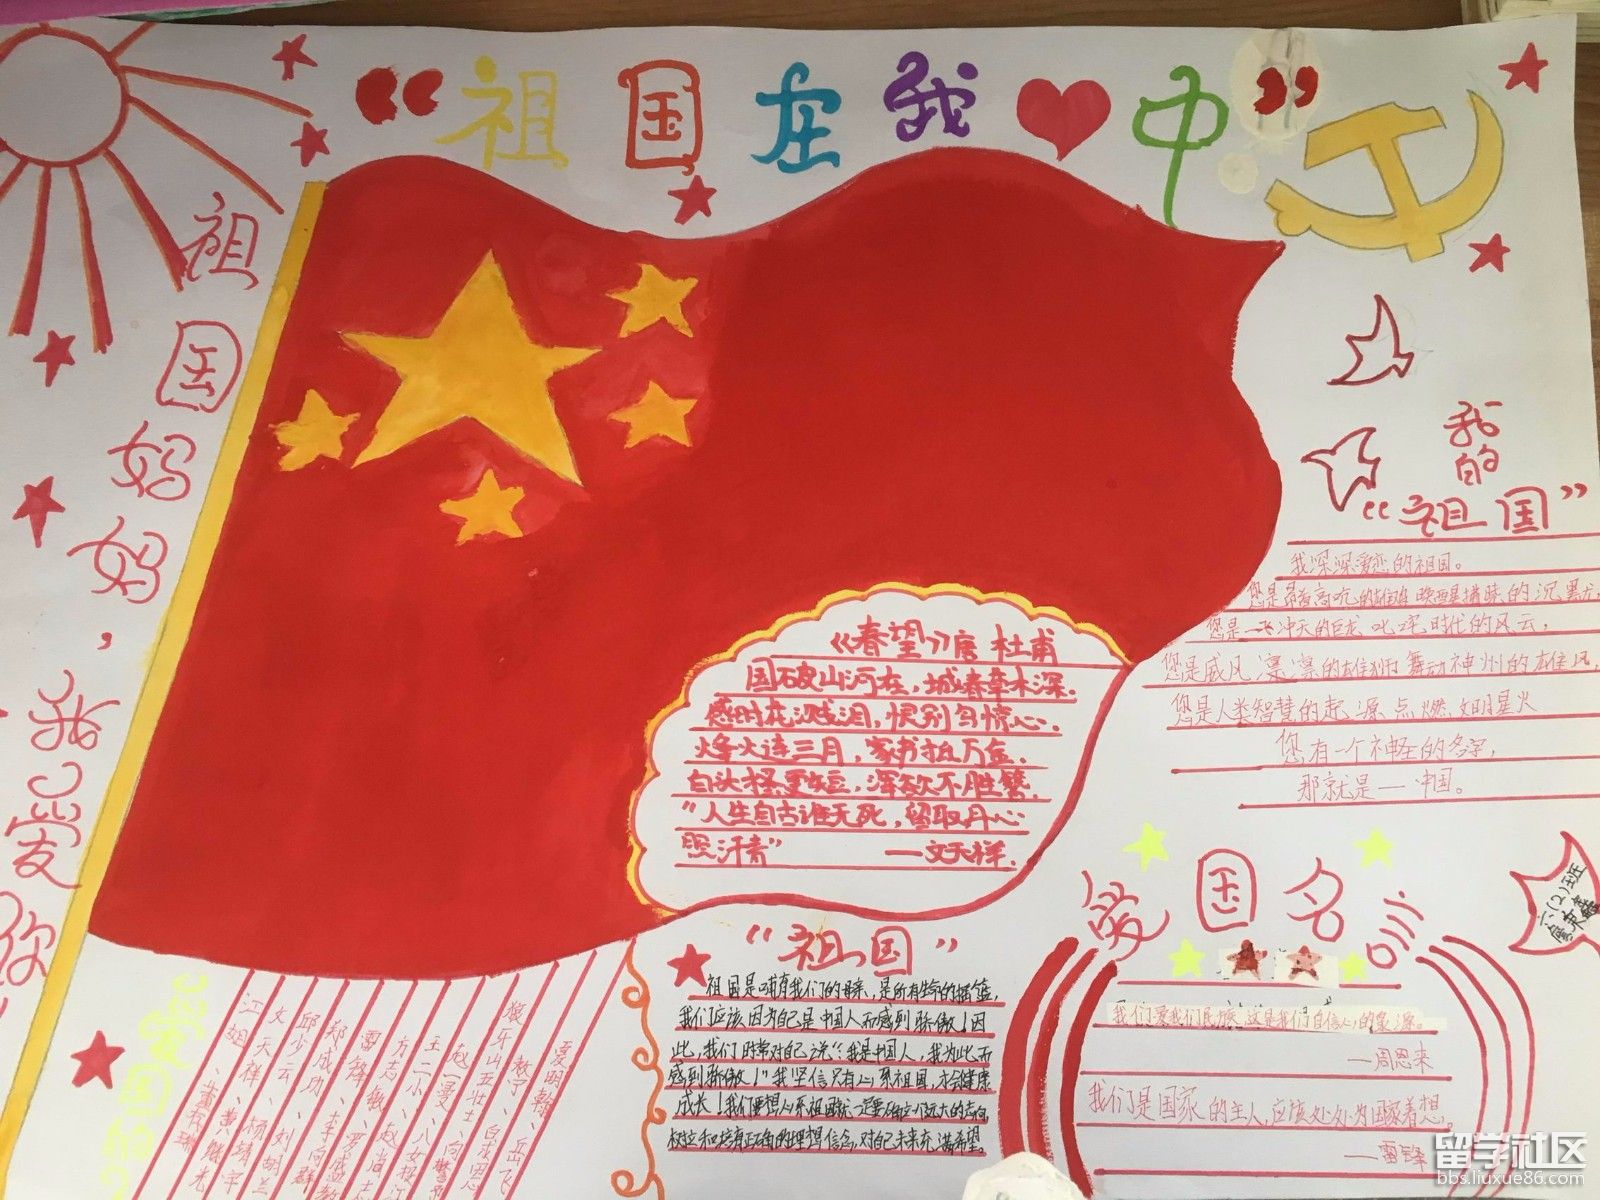 “祖国在我中”
祖国妈妈，我爱你
我的
“祖国”
我深深爱恋的祖国。
您是昂首高吭的雄鸡 唤醒拂晓的沉默，
您是一飞冲天的巨龙 叱咤时代的风云，
您是威风凛凛的雄狮 舞动神州的雄风，
您是人类智慧的起源 点燃文明星火
您有一个神圣的名字，
那就是一中国。
《春望》唐 杜甫
国破山河在，城春草木深.
感时花溅泪，恨别鸟惊心.
烽火连三月，家书抵万金.
白头搔更短，浑欲不胜簪.
“人生自古谁无死，留取丹心
照汗青” —文天祥.
“祖国”
祖国是哺育我们的母亲，是所有生命的摇篮，
我们应该因为自己是中国人而感到骄傲！因
此，我们时常对自己说“我是中国人，我为此而
感到骄傲！”我坚信只有心系祖国，才会健康
成长！我们要想心系祖国就一定要确立远大的志向，
树立和培育正确的理想信念，对自己未来充满希望。
爱国名言
我们爱我们民族，这是我们自信心的泉源。
—周恩来
我们是国家的主人，应该处处为国家着想。
—雷锋
六(2)班
江姐、董存瑞
文天祥、黄继光
邱少云、杨靖宇
郑成功、刘胡兰
雷锋、李向群
方志敏、罗盛教
王二小、赵尚志
赵一曼、八女投江
狼牙山五壮士
岳飞
留学社区
bbs.liuxue86.com